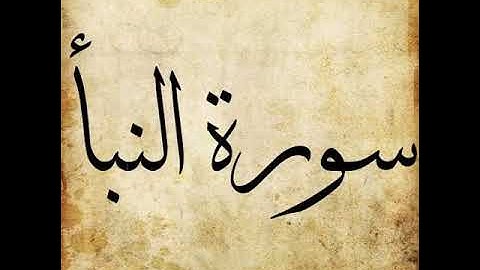 سورة النبأ